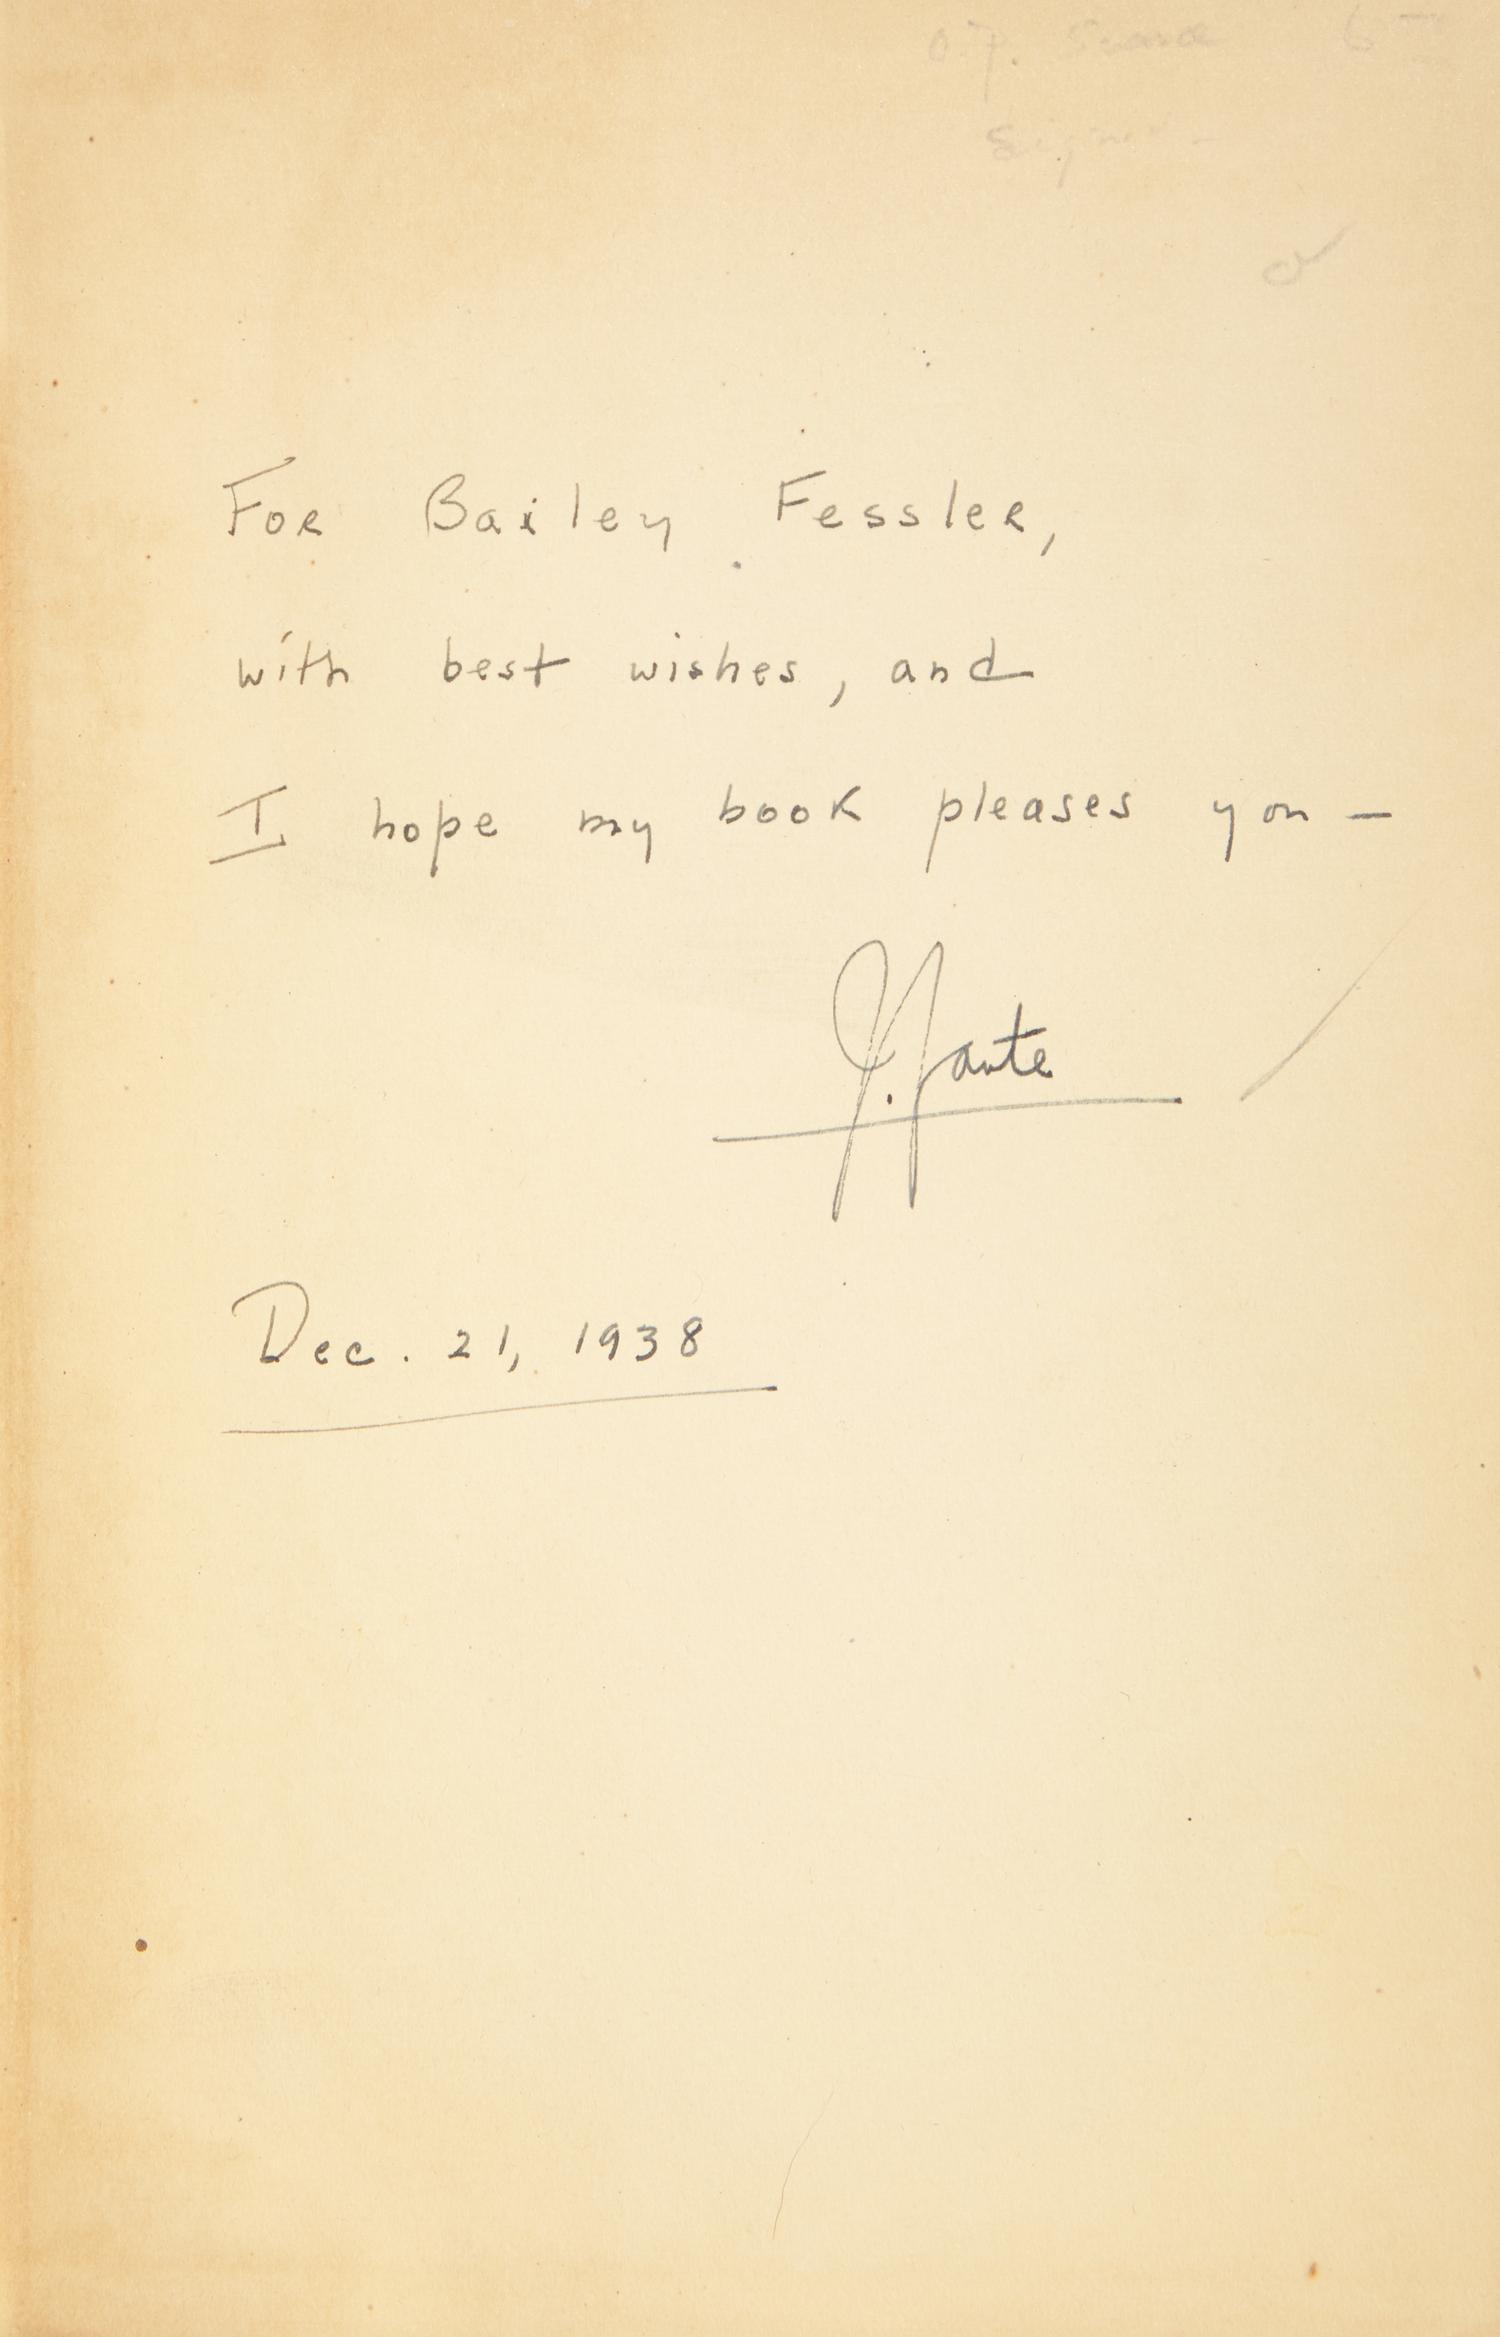 O.P. Scarce 6
Signed -
For Bailey Fessler,
with best wishes, and
I hope my book pleases you —
J. Fante
Dec. 21, 1938